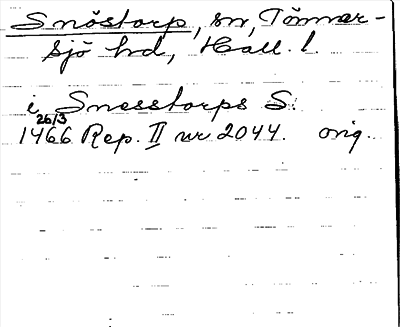 Snöstorp, sn, Tönner-
sjö hd, Hall. l.
i Snesstorps S:
26/3
1466 Rep. II nr 2044. orig.